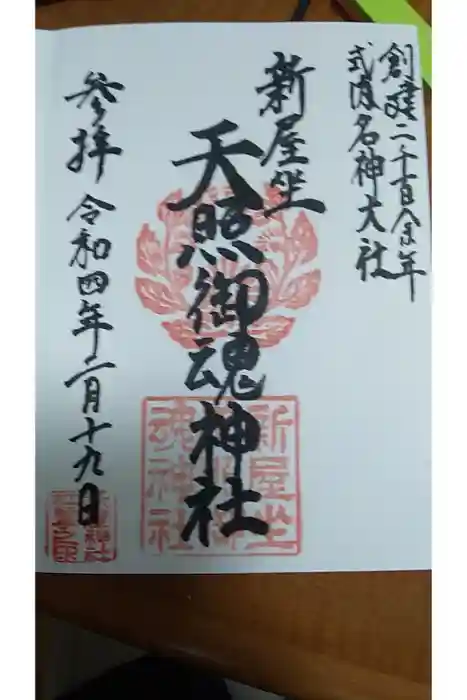 創建二千百余年
式内名神大社
新屋坐
天照御魂神社
新屋坐
魂神社
参拝 令和四年二月十九日